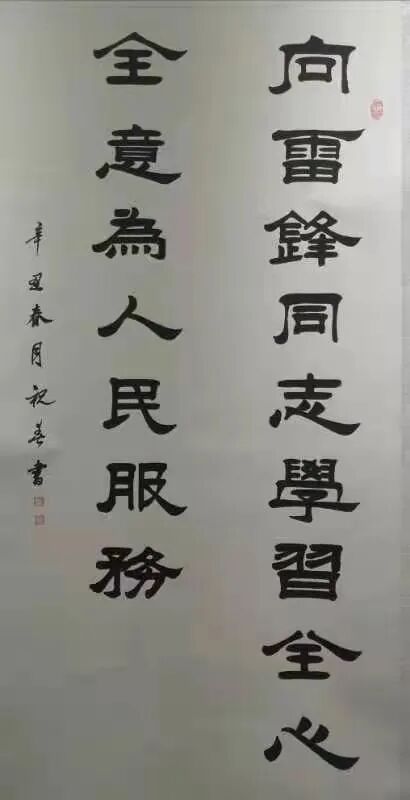 向雷鋒同志學習全心
全意為人民服務
辛丑春月祝春書